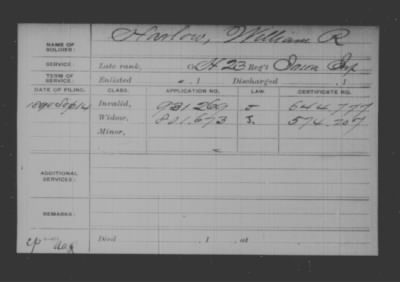 NAME OF SOLDIER: Harlow, William R
SERVICE: Late rank, Co. H 23 Reg't Iowa Inf
TERM OF SERVICE: Enlisted , 1 Discharged , 1
DATE OF FILING. CLASS. APPLICATION NO. LAW. CERTIFICATE NO.
1890 Invalid, 644.777
Widow, 801.673 574.207
Minor,
ADDITIONAL SERVICES:
REMARKS:
Died , 1 , at